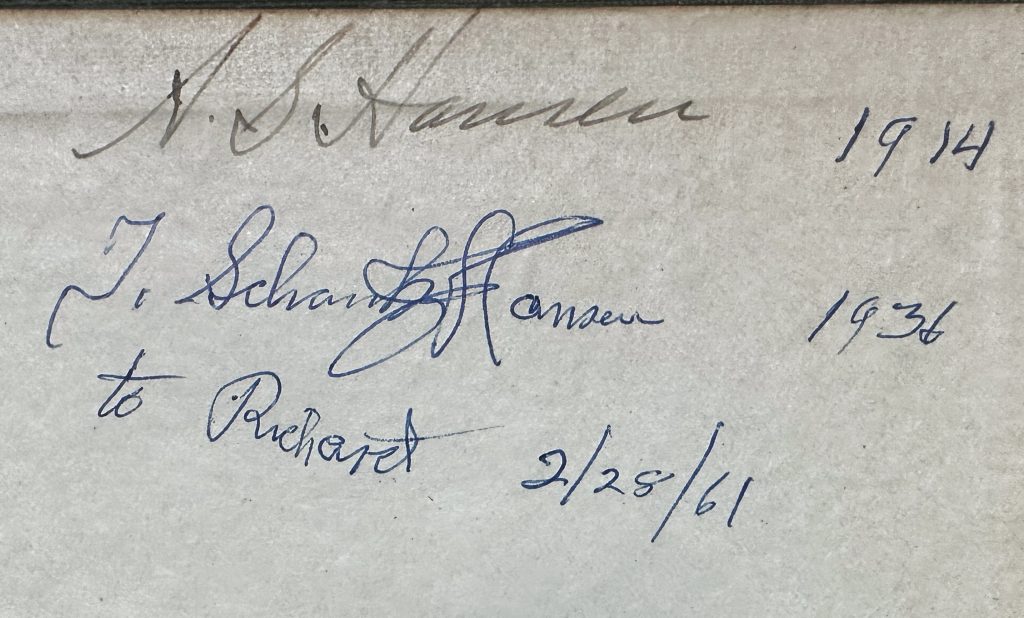 N. S. Hansen 1914
T. Schantz Hansen 1936
to Richard 2/28/61